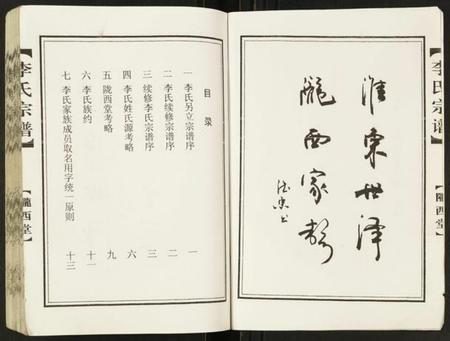 李氏宗谱
隴西堂
淮東世泽
隴西家声
德忠书
目录
一 李氏另立宗谱序 一
二 李氏续修宗谱序 二
三 续修李氏宗谱序 三
四 李氏姓氏源考略 六
五 陇西堂考略 九
六 李氏族约 十一
七 李氏家族成员取名用字统一原则 十三
【李氏宗谱】
【隴西堂】